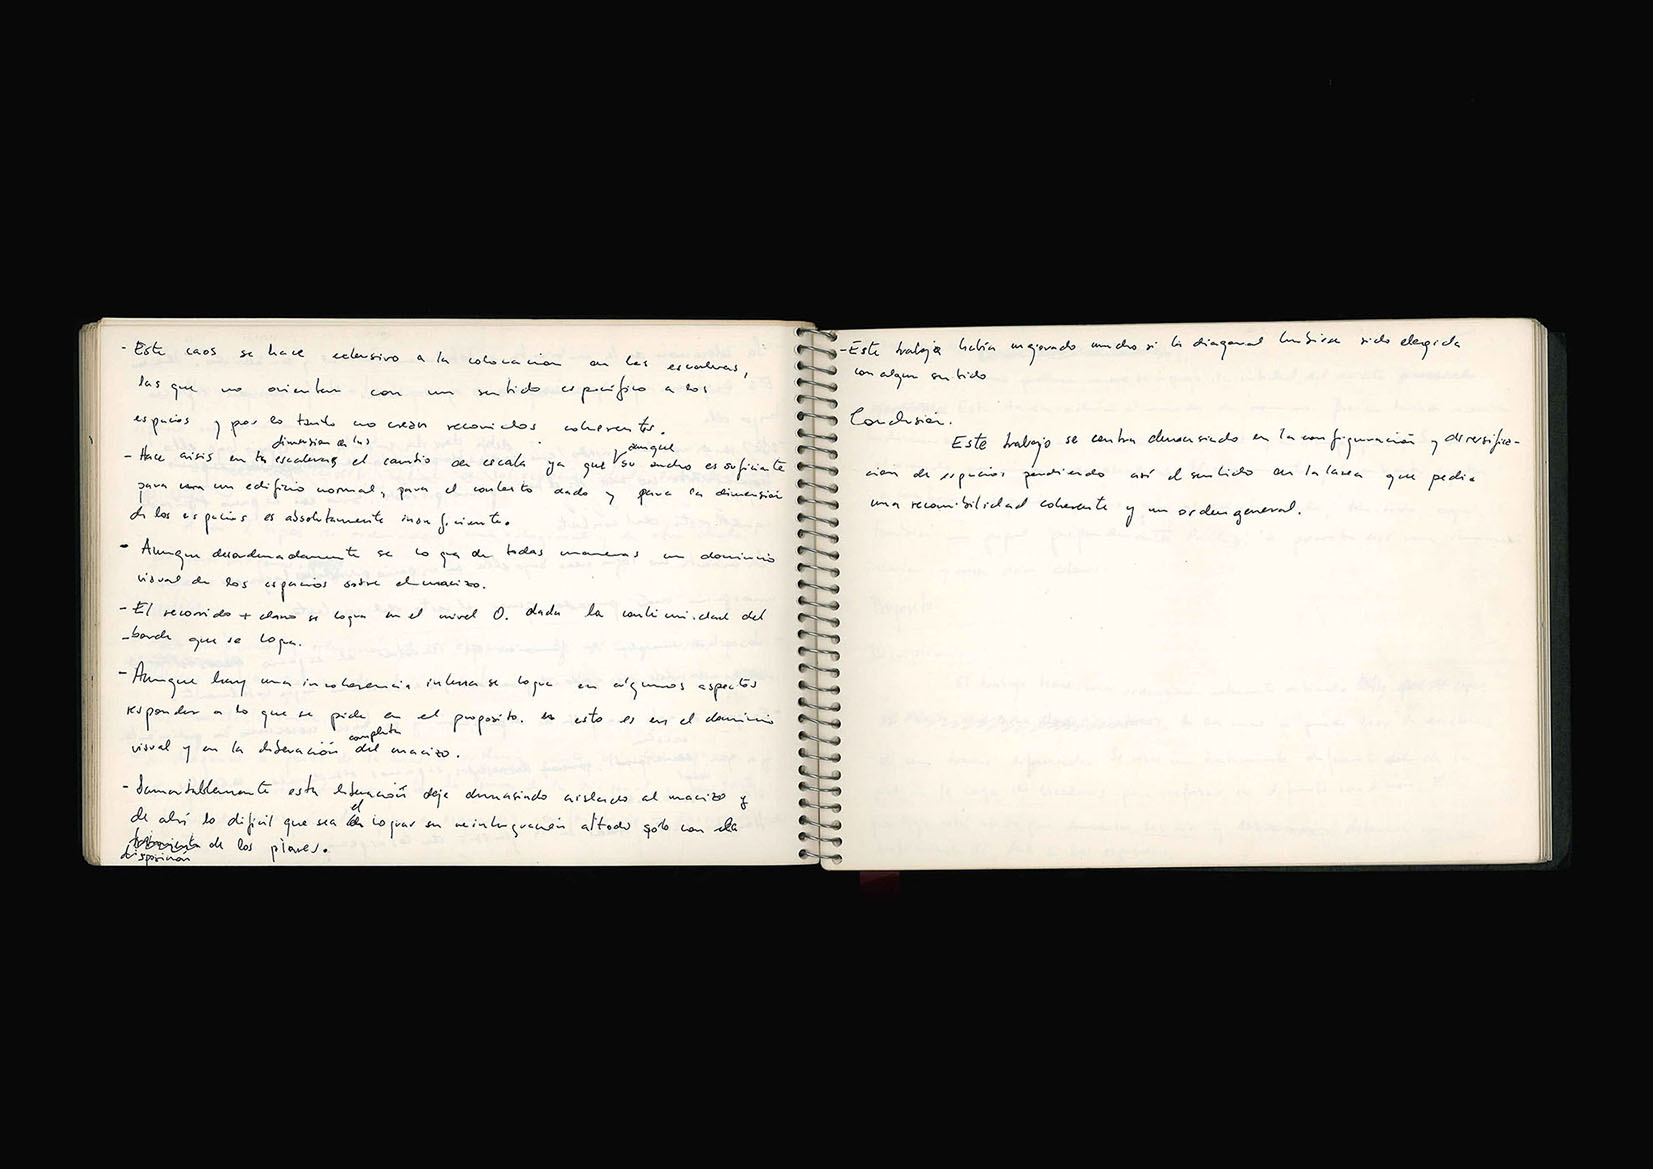 - Este caos se hace extensivo a la colocación en las escaleras,
las que no orientan con un sentido específico a los
espacios y por lo tanto no crean recorridos coherentes.
dimension de las
- Hace crisis en las escaleras el cambio de escala ya que aunque su ancho es suficiente
para un edificio normal, para el contexto dado y para la dimensión
de los espacios es absolutamente insuficiente.
- Aunque desordenadamente se logra de todas maneras un dominio
visual de los espacios sobre el macizo.
- El recorrido + claro se logra en el nivel 0. dada la continuidad del
borde que se logra.
- Aunque hay una incoherencia interna se logra en algunos aspectos
responder a lo que se pide en el proposito. esto es en el dominio
completa
visual y en la liberación del macizo.
- Lamentablemente esta liberación deja demasiado aislado al macizo y
de ahí lo dificil que sea el lograr su reintegración al todo solo con la
disposición de los pilares.
- Este trabajo habría mejorado mucho si la diagonal hubiera sido elegida
con algun sentido
Conclusión.
Este trabajo se centra demasiado en la configuración y diversifica-
ción de espacios perdiendo así el sentido en la tarea que pedia
una recorribilidad coherente y un orden general.